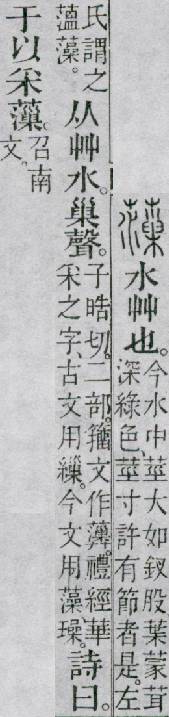 薻水艸也。今水中莖大如釵股葉蒙茸深綠色。莖寸許有節者是。左
氏謂之薀藻。从艸水。巢聲。子晧切。二部。籒文作薻。禮經華采之字、古文用繅。今文用藻璪。詩曰。
于以采薻。召南文。